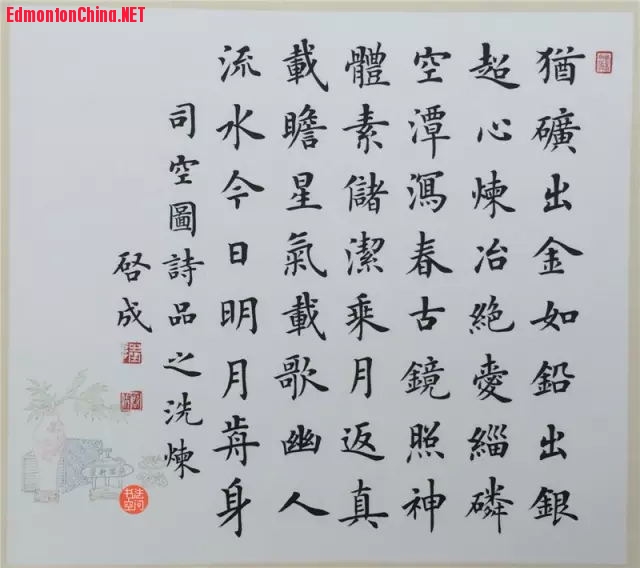 EdmontonChina.NET
猶礦出金如鉛出銀
超心煉冶絕愛緇磷
空潭瀉春古鏡照神
體素儲潔乘月返真
載瞻星氣載歌幽人
流水今日明月歬身
司空圖詩品之洗煉
啓成